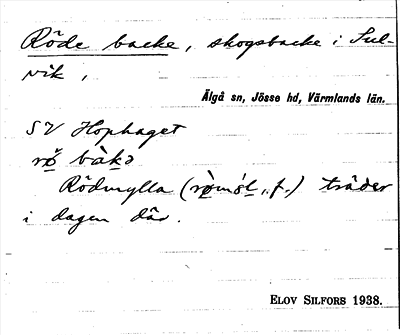 Röde backe, skogsbacke i Sul-
vik,
Älgå sn, Jösse hd, Värmlands län.
SV Hophaget
bàkə
Rödmylla (f.) träder
i dagen där.
ELOV SILFORS 1938.